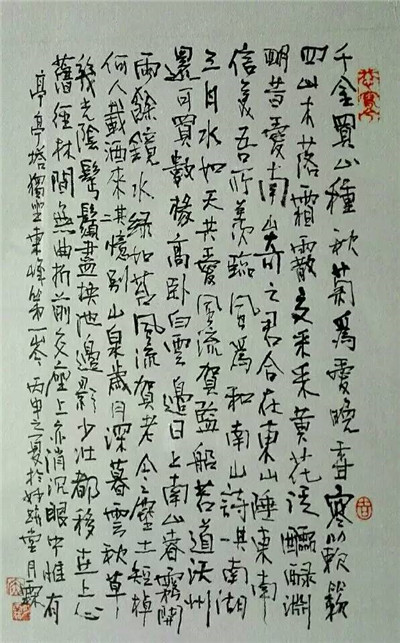 千金買山種秋菊為愛晚香寒蔌蔌
四山木落霜霰多采采黃花浸醽醁淵
明昔愛南山奇之君合在東山陲東南
信美吾所羨臨風為和南山詩其南湖
三月水如天共愛風流賀監船若道沃州
還可買數椽高卧白雲邊日上南山春霧開
雨餘鏡水綠如苔風流賀老今塵土短棹
何人載酒來共憶別山泉歲月深暮雲秋草
幾光陰髩鬚盡換池邊影少壯都移世上心
舊徑林間無曲折前交座上亦消沉眼中惟有
亭亭塔獨坐東峰第一岑丙申之夏於妙 堂月霖